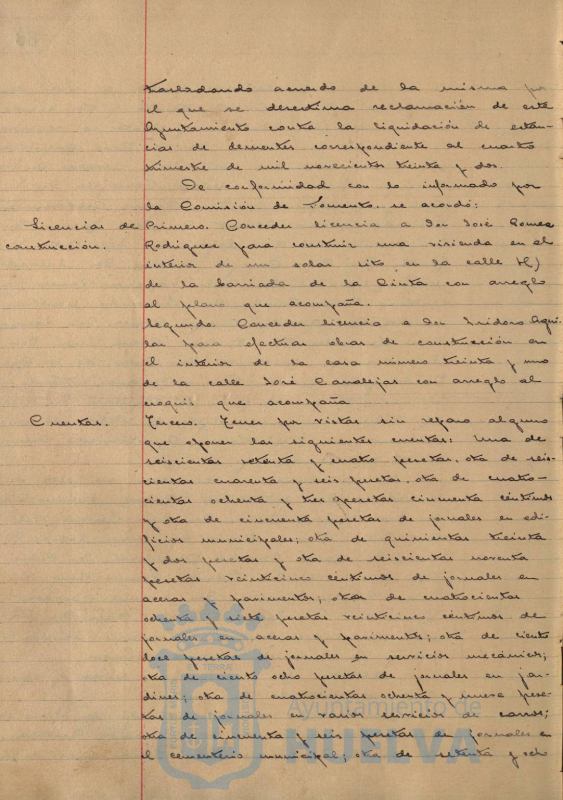 trasladando acuerdo de la misma por
el que se desestima reclamación de este
Ayuntamiento contra la liquidación de estan-
cias de dementes correspondiente al cuarto
trimestre de mil novecientos treinta y dos.
De conformidad con lo informado por
la Comisión de Fomento, se acordó:
Licencias de
construcción.
Primero. Conceder licencia a Don José Romea
Rodriguez para construir una vivienda en el
interior de un solar sito en la calle H)
de la barriada de la Cinta con arreglo
al plano que acompaña.
Segundo. Conceder licencia a Don Isidoro Agui-
lar para efectuar obras de construcción en
el interior de la casa número treinta y uno
de la calle José Canalejas con arreglo al
croquis que acompaña
Cuentas.
Tercero. Tener por vistas sin reparo alguno
que oponer las siguientes cuentas: Una de
seiscientas setenta y cuatro pesetas, otra de seis-
cientas cuarenta y seis pesetas, otra de cuatro-
cientas ochenta y tres pesetas cincuenta céntimos
y otra de cincuenta pesetas de jornales en edi-
ficios municipales; otra de quinientas treinta
y dos pesetas y otra de seiscientas noventa
pesetas veinticinco céntimos de jornales en
aceras y pavimentos; otra de cuatrocientas
ochenta y siete pesetas veinticinco céntimos de
jornales en aceras y pavimentos; otra de ciento
doce pesetas de jornales en servicios mecánicos;
otra de ciento ocho pesetas de jornales en jar-
dines; otra de cuatrocientas ochenta y nueve pese-
tas de jornales en varios servicios de carros;
otra de cincuenta y seis pesetas de jornales en
el cementerio municipal; otra de setenta y ocho
Ayuntamiento de
HUELVA